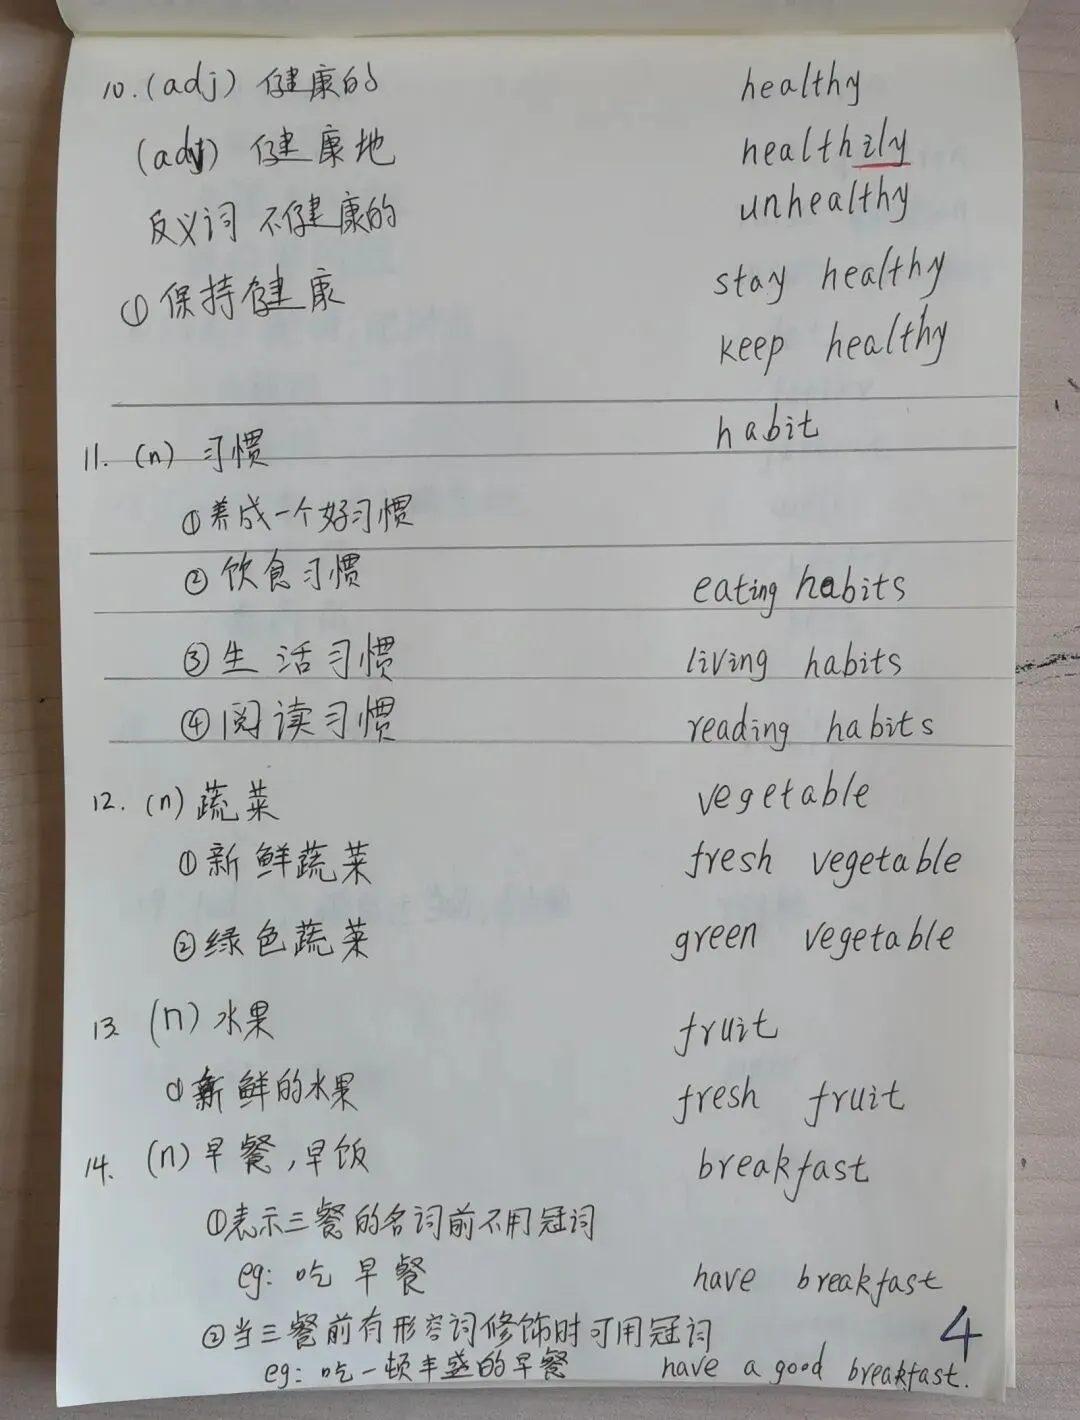 10. (adj) 健康的 healthy
(adv) 健康地 healthily
反义词 不健康的 unhealthy
① 保持健康 stay healthy
keep healthy
11. (n) 习惯 habit
①养成一个好习惯
② 饮食习惯 eating habits
③生活习惯 living habits
④阅读习惯 reading habits
12. (n) 蔬菜 vegetable
①新鲜蔬菜 fresh vegetable
②绿色蔬菜 green vegetable
13. (n) 水果 fruit
①新鲜的水果 fresh fruit
14. (n) 早餐,早饭 breakfast
①表示三餐的名词前不用冠词
eg: 吃早餐 have breakfast
②当三餐前有形容词修饰时可用冠词
eg: 吃一顿丰盛的早餐 have a good breakfast.
4